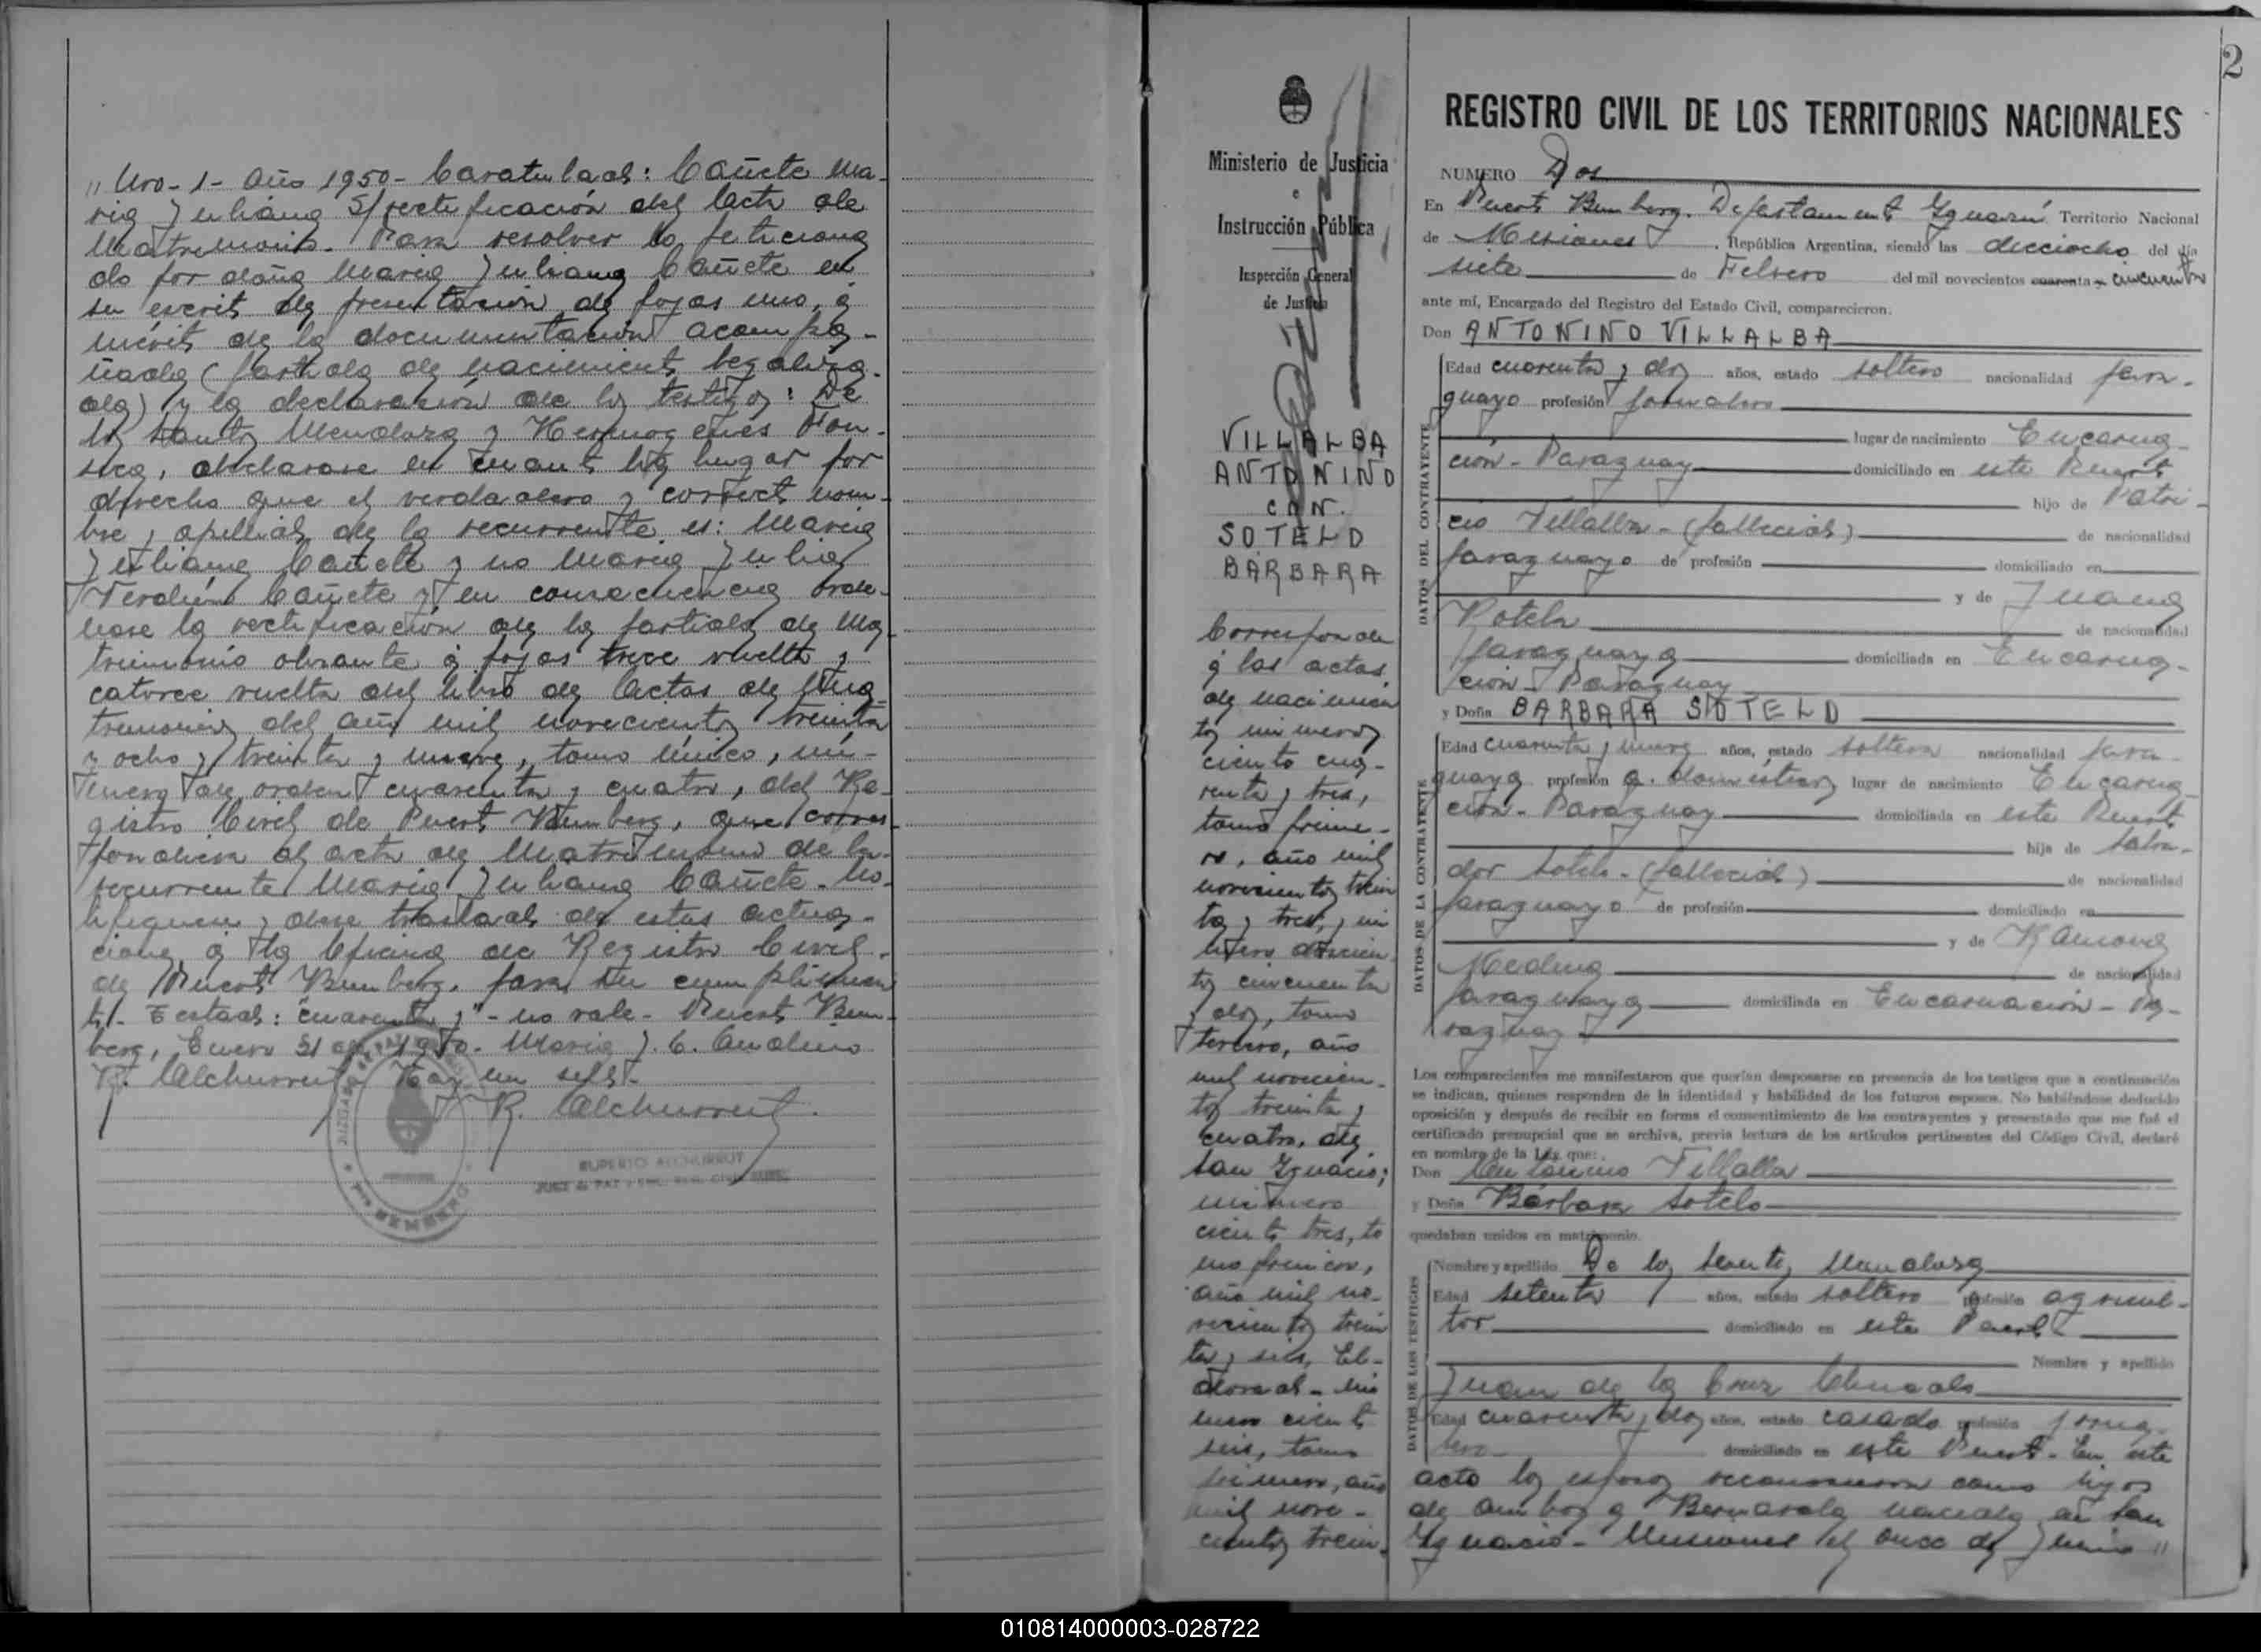 „ Nro- 1- Año 1950- Caratulado: Cañete Ma-
ria Juliana S/rectificación del acta de
Matrimonio. Para resolver lo peticiona
do por doña Maria Juliana Cañete en
su escrito de presentación de fojas uno, a
mérito de la documentación acompa-
ñada (partida de nacimiento legaliza-
da) y la declaración de los testigos: De
los Santos Mendoza y Hermogenes Fon-
seca, declarase en cuanto ha lugar por
derecho que el verdadero y correcto nom-
bre y apellido de la recurrente es: Maria
Juliana Cañete y no Maria Julia
Verdún Cañete y en consecuencia orde-
nase la rectificación de la partida de Ma
trimonio obrante a fojas trece vuelta y
catorce vuelta del libro de Actas de Ma-
trimonios del año mil novecientos treinta
y ocho y treinta y nueve, tomo único, nú-
mero de orden cuarenta y cuatro, del Re-
gistro Civil de Puerto Bemberg, que corres-
pondiera al acta de Matrimonio de la
recurrente Maria Juliana Cañete. No-
tifiquese y dese traslado de estas actua-
ciones a la Oficina de Registro Civil
de Puerto Bemberg. para su cumplimien
to/- Testado: "cuarenta y" - no vale- Puerto Bem-
berg, Enero 31 de 1950. Maria J. C. Andino
R. Alchurrut Hay un sello-
R. Alchurrut.
RUPERTO ALCHURRUT
JUEZ de PAZ y ENC. REG. CIVIL
2
Ministerio de Justicia
e
Instrucción Pública
Inspección General
de Justicia
VILLALBA
ANTONINO
CON.
SOTELO
BARBARA
Corresponde
a las actas
de nacimien
tos números
ciento cua-
renta y tres,
tomo prime-
ro, año mil
novecientos trein
ta y tres, nú
mero doscien
tos cincuenta
y dos, tomo
tercero, año
mil novecien-
tos treinta y
cuatro, de
San Ignacio;
número
ciento tres, to
mo primero,
año mil no-
vecientos trein
ta y seis, El-
dorado - nú
mero ciento
seis, tomo
primero, año
mil nove-
cientos trein.
REGISTRO CIVIL DE LOS TERRITORIOS NACIONALES
NUMERO Dos
En Puerto Bemberg. Departamento Iguazú Territorio Nacional
de Misiones , República Argentina, siendo las dieciocho del día
siete de Febrero del mil novecientos cuarenta y cincuenta
ante mí, Encargado del Registro del Estado Civil, comparecieron.
Don ANTONINO VILLALBA
DATOS DEL CONTRAYENTE
Edad cuarenta y dos años, estado soltero nacionalidad para-
guayo profesión jornalero
lugar de nacimiento Encarna-
ción - Paraguay domiciliado en este Puerto
hijo de Patri-
cio Villalba - (fallecido) de nacionalidad
paraguayo de profesión domiciliado en
y de Juana
Sotelo de nacionalidad
paraguaya domiciliada en Encarna-
ción - Paraguay
y Doña BARBARA SOTELO
DATOS DE LA CONTRAYENTE
Edad cuarenta y nueve años, estado soltera nacionalidad para-
guaya profesión q. domésticos lugar de nacimiento Encarna-
ción - Paraguay domiciliada en este Puerto
hija de Salva-
dor Sotelo - (fallecido) de nacionalidad
paraguayo de profesión domiciliado en
y de Ramona
Medina de nacionalidad
paraguaya domiciliada en Encarnación - Pa-
raguay
Los comparecientes me manifestaron que querían desposarse en presencia de los testigos que a continuación
se indican, quienes responden de la identidad y habilidad de los futuros esposos. No habiéndose deducido
oposición y después de recibir en forma el consentimiento de los contrayentes y presentado que me fué el
certificado prenupcial que se archiva, previa lectura de los artículos pertinentes del Código Civil, declaré
en nombre de la Ley que:
Don Antonino Villalba
y Doña Bárbara Sotelo
quedaban unidos en matrimonio.
DATOS DE LOS TESTIGOS
Nombre y apellido De los Santos Mendoza
Edad setenta años, estado soltero profesión agricul-
tor domiciliado en este Puerto
Nombre y apellido
Juan de la Cruz
Edad cuarenta y dos años, estado casado profesión jorna-
lero domiciliado en este Puerto - En este
acto los esposos reconocieron como hijos
de ambos a Bernarda nacida en San
Ignacio - Misiones el once de Junio „
010814000003-028722